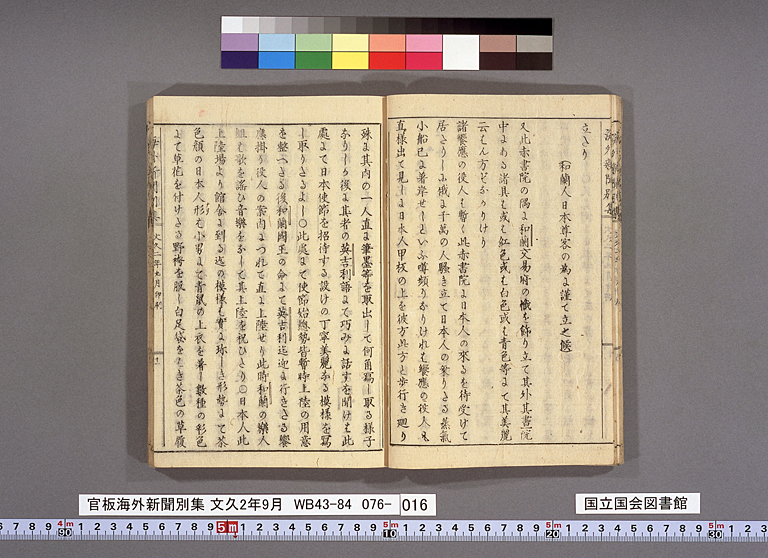 立さり
和蘭人日本尊客の為に謹て立之候
又此赤書院の隅に和蘭交易府の幟を飾り立て其外其書院
中にある諸具も或は紅色或は白色或は青色等にて其美麗
云はん方どなかりけり
諸饗應の役人も暫く此赤書院に日本人の来るを待受けて
居さりしに俄に千萬の人騒き立て日本人の乗りさる蒸氣
小船已に着岸せしといふ噂頻りなりけれは饗應の役人は
直様出て見しに日本人甲板の上を彼方此方と歩行き廻り
殊に其内の一人直に筆墨等を取出して何角寫し取る様子
なりしか後に其者の英吉利語にて巧みに話すを聞けは此
處にて日本使節を招待する設けの丁寧美麗なる模様を寫
し取りさるよし〇此處にて使節始総勢皆暫時上陸の用意
を整へさる後和蘭國王の命にて英吉利迄迎に行きさる饗
應掛り役人の案内につれて直に上陸せり此時和蘭の樂人
組も歌を謡ひ音樂をなして其上陸を祝ひさり〇日本人此
上陸場より館舎に到る迄の模様も實に珍しき形勢にて茶
色顔の日本人形も小男にて青鼠の上衣を着し数種の彩色
にて草花を付けさる野袴を服し白足袋をはき茶色の草履
海外新聞別集
文久二年九月印刷
官板海外新聞別集 文久2年9月 WB43-84 076- 016
国立国会図書館